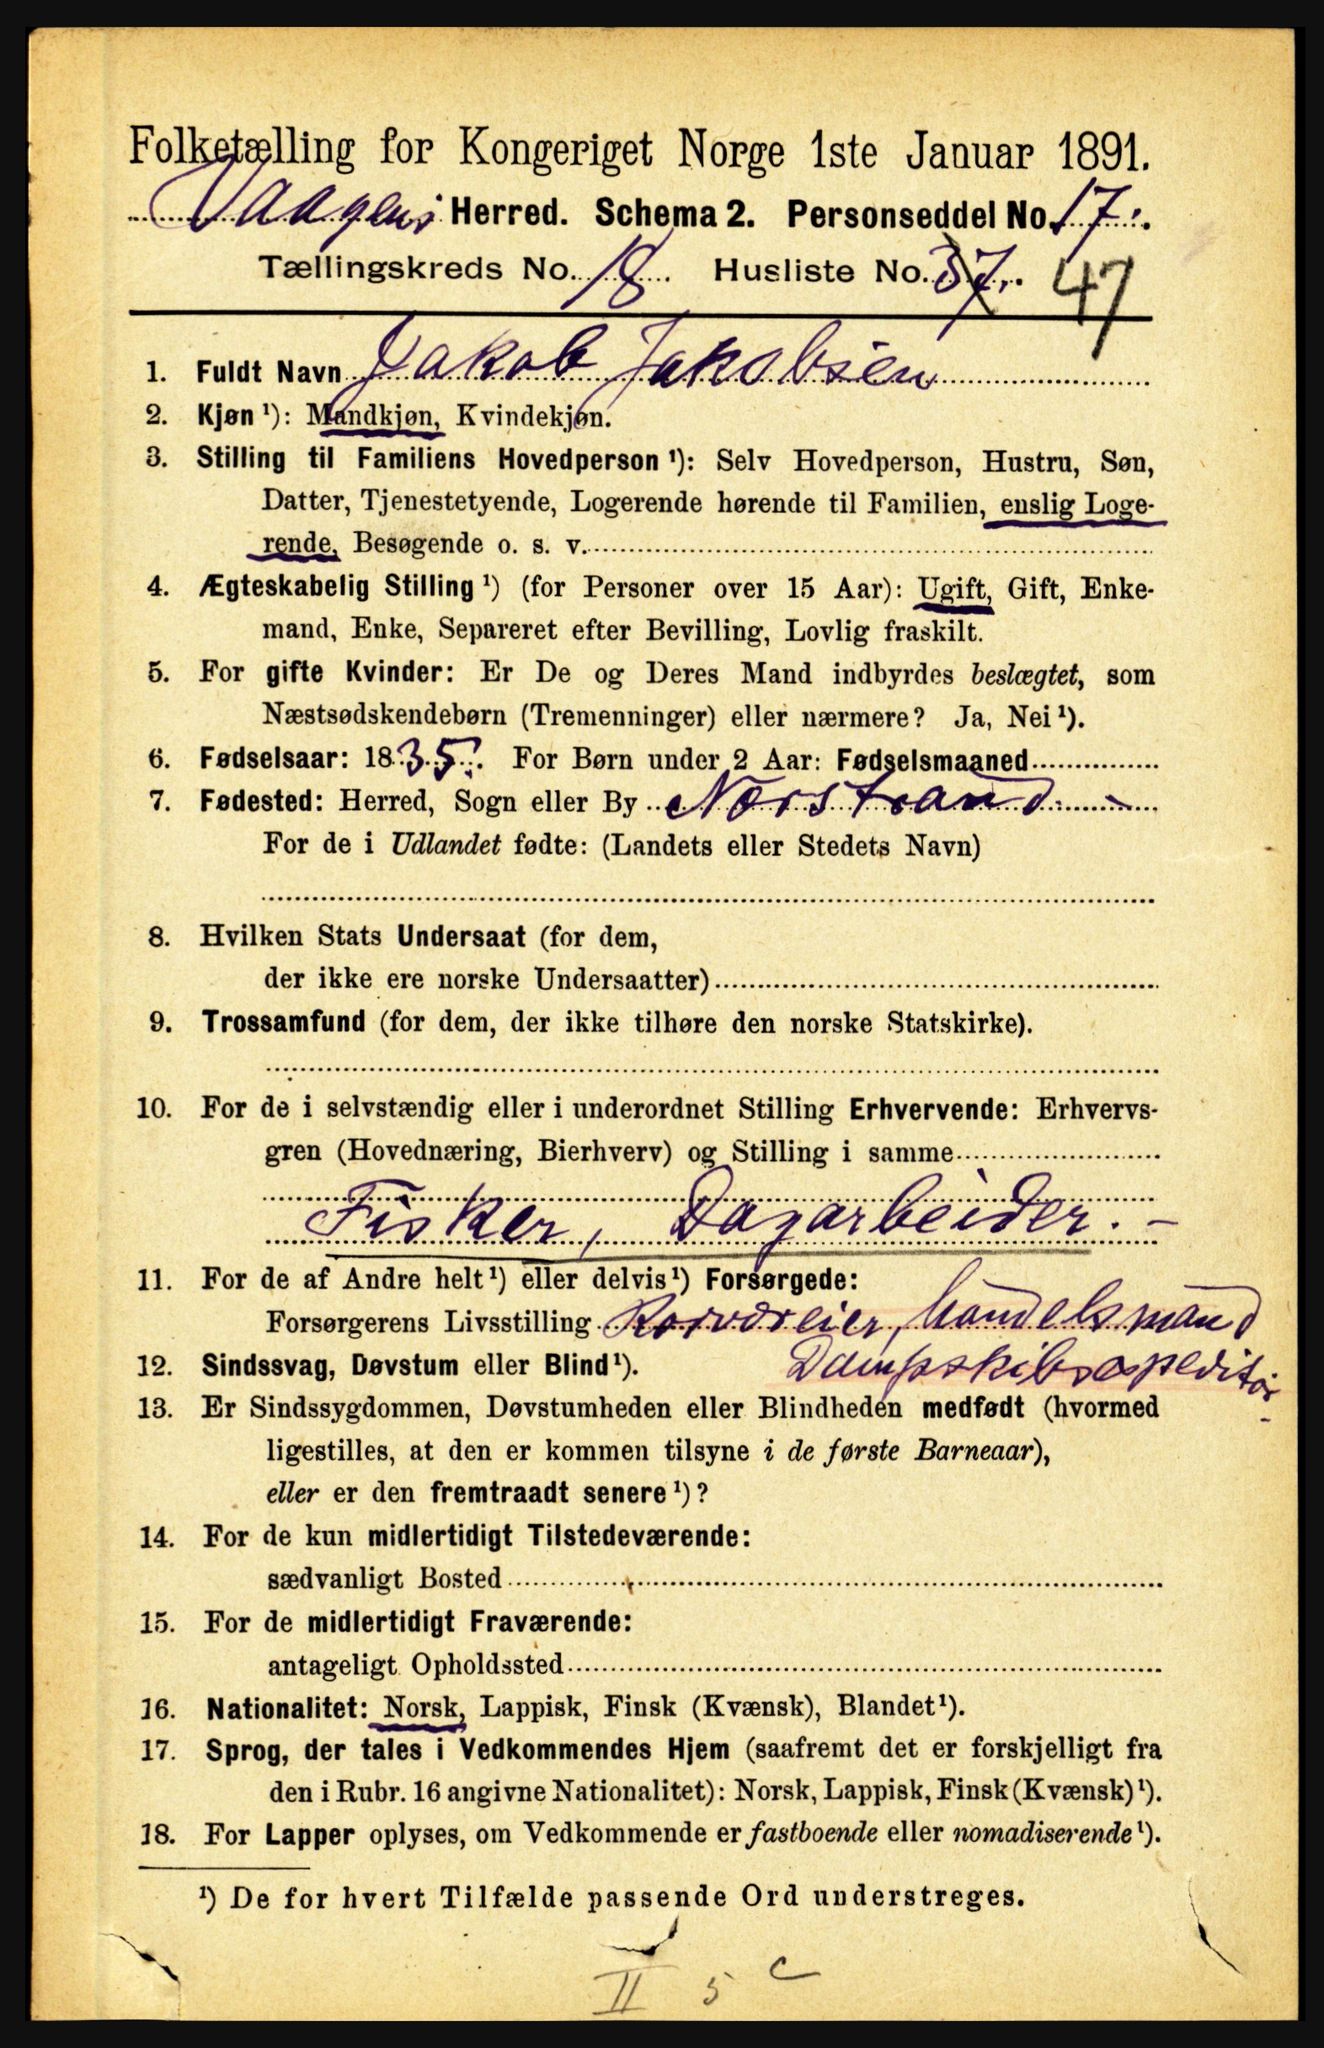 Folketælling for Kongeriget Norge 1ste Januar 1891.
Vaagens Herred. Schema 2. Personseddel No. 17.
Tællingskreds No. 18. Husliste No. 37. 47
1. Fuldt Navn Jakob Jakobsen
2. Kjøn ¹): Mandkjøn, Kvindekjøn.
3. Stilling til Familiens Hovedperson ¹): Selv Hovedperson, Hustru, Søn,
Datter, Tjenestetyende, Logerende hørende til Familien, enslig Loge-
rende, Besøgende o. s. v.
4. Ægteskabelig Stilling ¹) (for Personer over 15 Aar): Ugift, Gift, Enke-
mand, Enke, Separeret efter Bevilling, Lovlig fraskilt.
5. For gifte Kvinder: Er De og Deres Mand indbyrdes beslægtet, som
Næstsødskendebørn (Tremenninger) eller nærmere? Ja, Nei ¹).
6. Fødselsaar: 1835. For Børn under 2 Aar: Fødselsmaaned
7. Fødested: Herred, Sogn eller By Nærstrand -
For de i Udlandet fødte: (Landets eller Stedets Navn)
8. Hvilken Stats Undersaat (for dem,
der ikke ere norske Undersaatter)
9. Trossamfund (for dem, der ikke tilhøre den norske Statskirke).
10. For de i selvstændig eller i underordnet Stilling Erhvervende: Erhvervs-
gren (Hovednæring, Bierhverv) og Stilling i samme
Fisker, Dagarbeider. -
11. For de af Andre helt ¹) eller delvis ¹) Forsørgede:
Forsørgerens Livsstilling handelsmand
12. Sindssvag, Døvstum eller Blind ¹). Dampskibsexpeditør
13. Er Sindssygdommen, Døvstumheden eller Blindheden medfødt (hvormed
ligestilles, at den er kommen tilsyne i de første Barneaar),
eller er den fremtraadt senere ¹)?
14. For de kun midlertidigt Tilstedeværende:
sædvanligt Bosted
15. For de midlertidigt Fraværende:
antageligt Opholdssted
16. Nationalitet: Norsk, Lappisk, Finsk (Kvænsk), Blandet ¹).
17. Sprog, der tales i Vedkommendes Hjem (saafremt det er forskjelligt fra
den i Rubr. 16 angivne Nationalitet): Norsk, Lappisk, Finsk (Kvænsk) ¹).
18. For Lapper oplyses, om Vedkommende er fastboende eller nomadiserende ¹).
¹) De for hvert Tilfælde passende Ord understreges.
II 5 c